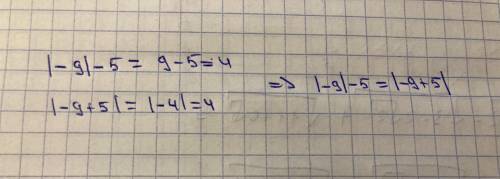 |-9|-5 = 9-5=4
|-9+5| = |-4|=4
=> |-9|-5 = |-9+5|